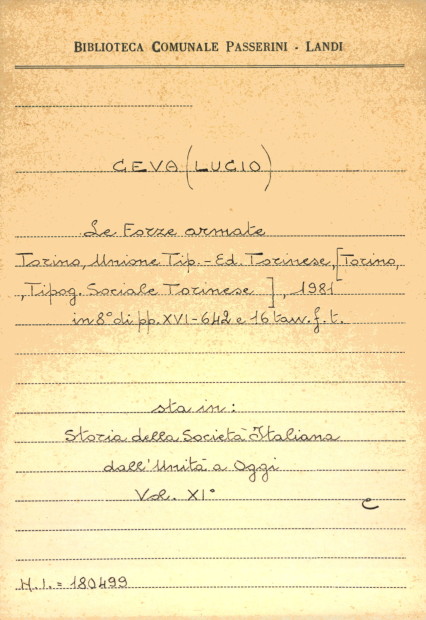 BIBLIOTECA COMUNALE PASSERINI - LANDI
CEVA (LUCIO)
Le Forze armate
Torino, Unione Tip.-Ed. Torinese, [Torino,
, Tipog. Sociale Torinese ], 1981
in 8° di pp. XVI-642 e 16 tav. f. t.
sta in:
Storia della Società Italiana
dall'Unità a Oggi
Vol. XI°
C
N.I. = 180499